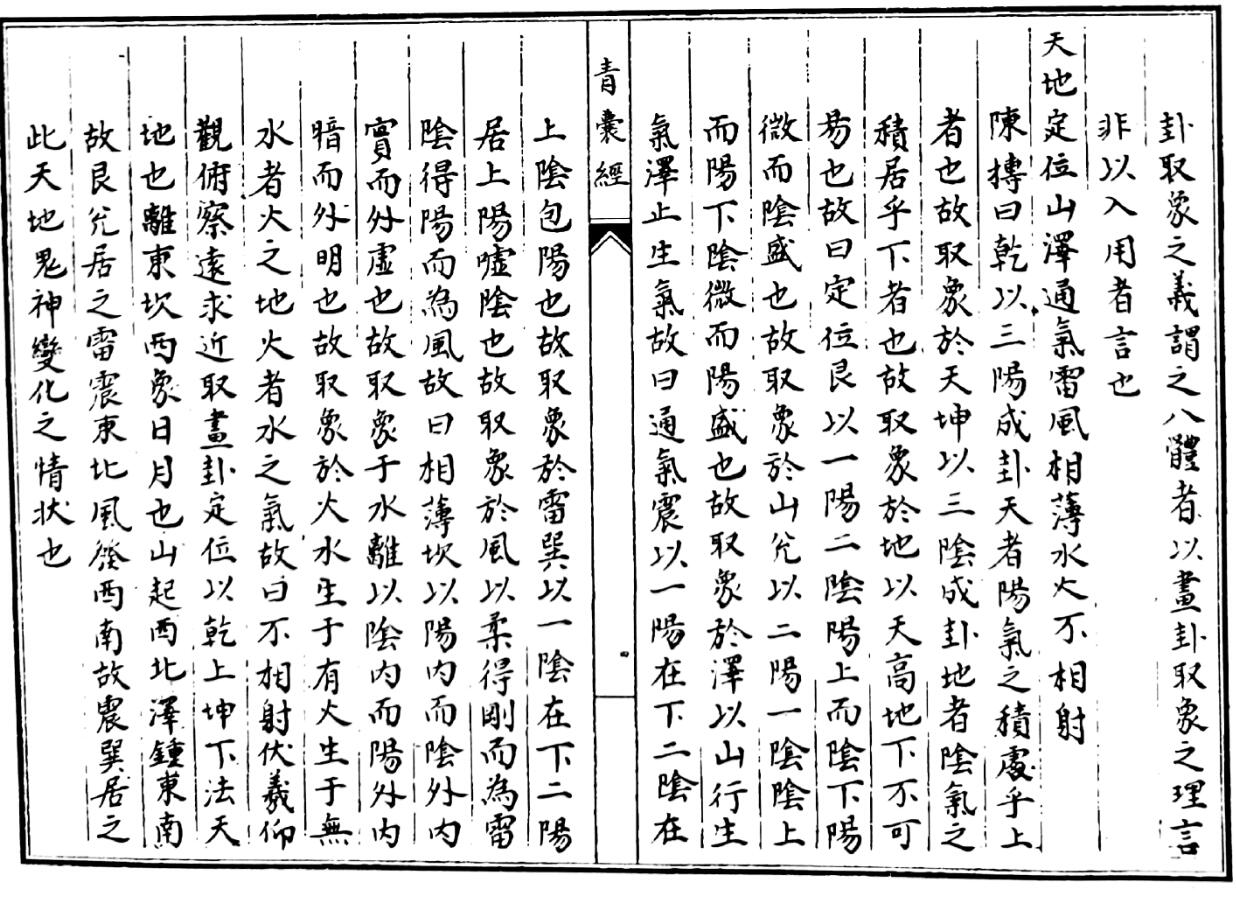 卦取象之義謂之八體者以畫卦取象之理言
非以入用者言也
天地定位山澤通氣雷風相薄水火不相射
陳摶曰乾以三陽成卦天者陽氣之積處乎上
者也故取象於天坤以三陰成卦地者陰氣之
積居乎下者也故取象於地以天高地下不可
易也故曰定位艮以一陽二陰陽上而陰下陽
微而陰盛也故取象於山兊以二陽一陰陰上
而陽下陰微而陽盛也故取象於澤以山行生
氣澤止生氣故曰通氣震以一陽在下二陰在
青囊經
上陰包陽也故取象於雷巽以一陰在下二陽
居上陽噓陰也故取象於風以柔得剛而為雷
陰得陽而為風故曰相薄坎以陽內而陰外內
實而外虛也故取象于水離以陰內而陽外內
暗而外明也故取象於火水生于有火生于無
水者火之地火者水之氣故曰不相射伏羲仰
觀俯察遠求近取畫卦定位以乾上坤下法天
地也離東坎西象日月也山起西北澤鍾東南
故艮兊居之雷震東北風發西南故震巽居之
此天地鬼神變化之情状也